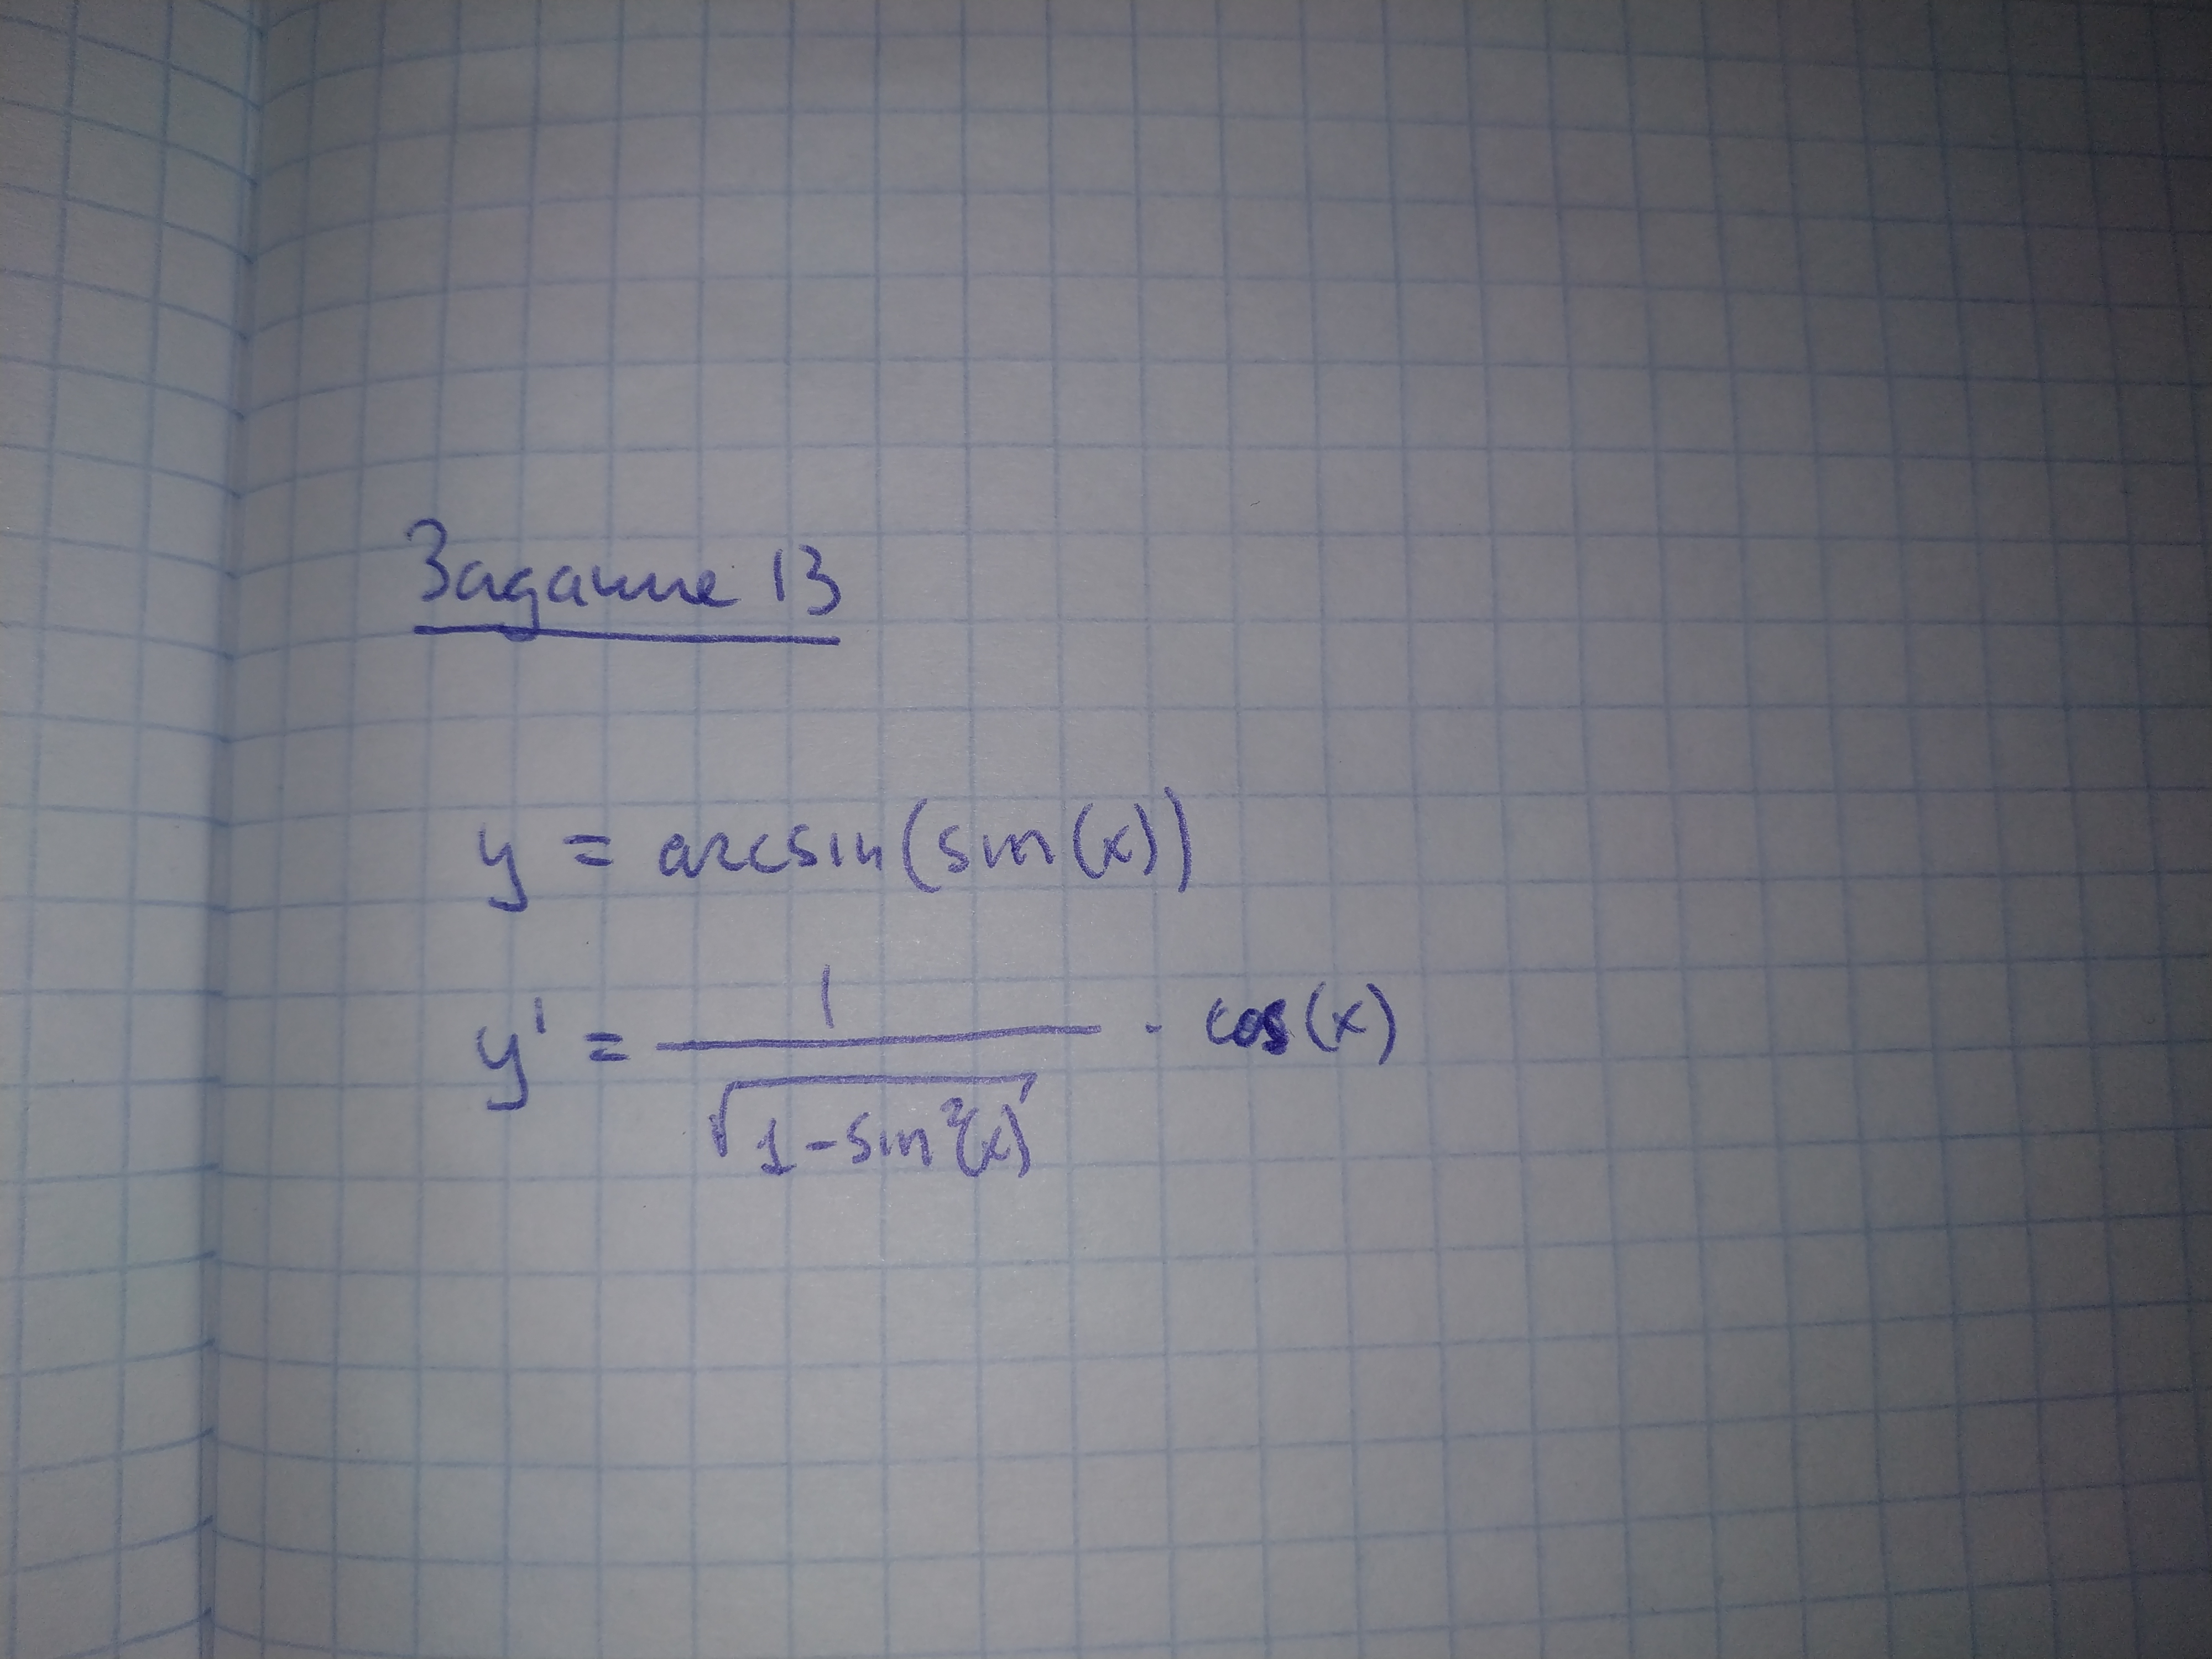 Задание 13
y = arcsin(sin(x))
y' = 1/√(1-sin²(x)) · cos(x)